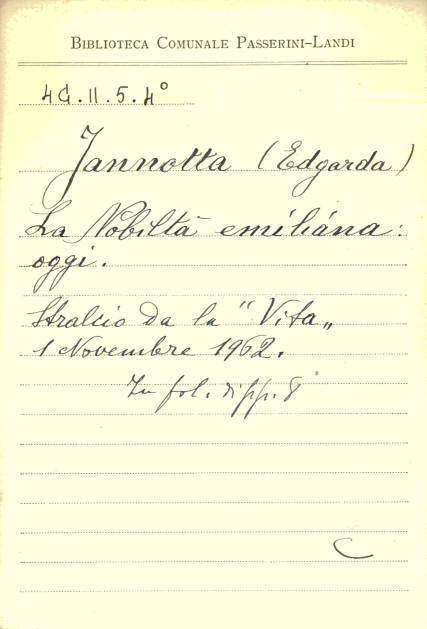 BIBLIOTECA COMUNALE PASSERINI-LANDI
4G.II.5.4°
Jannotta (Edgarda)
La Nobiltà emiliána:
oggi.
Stralcio da la "Vita„
1 Novembre 1962.
In fol. di pp. 8
C